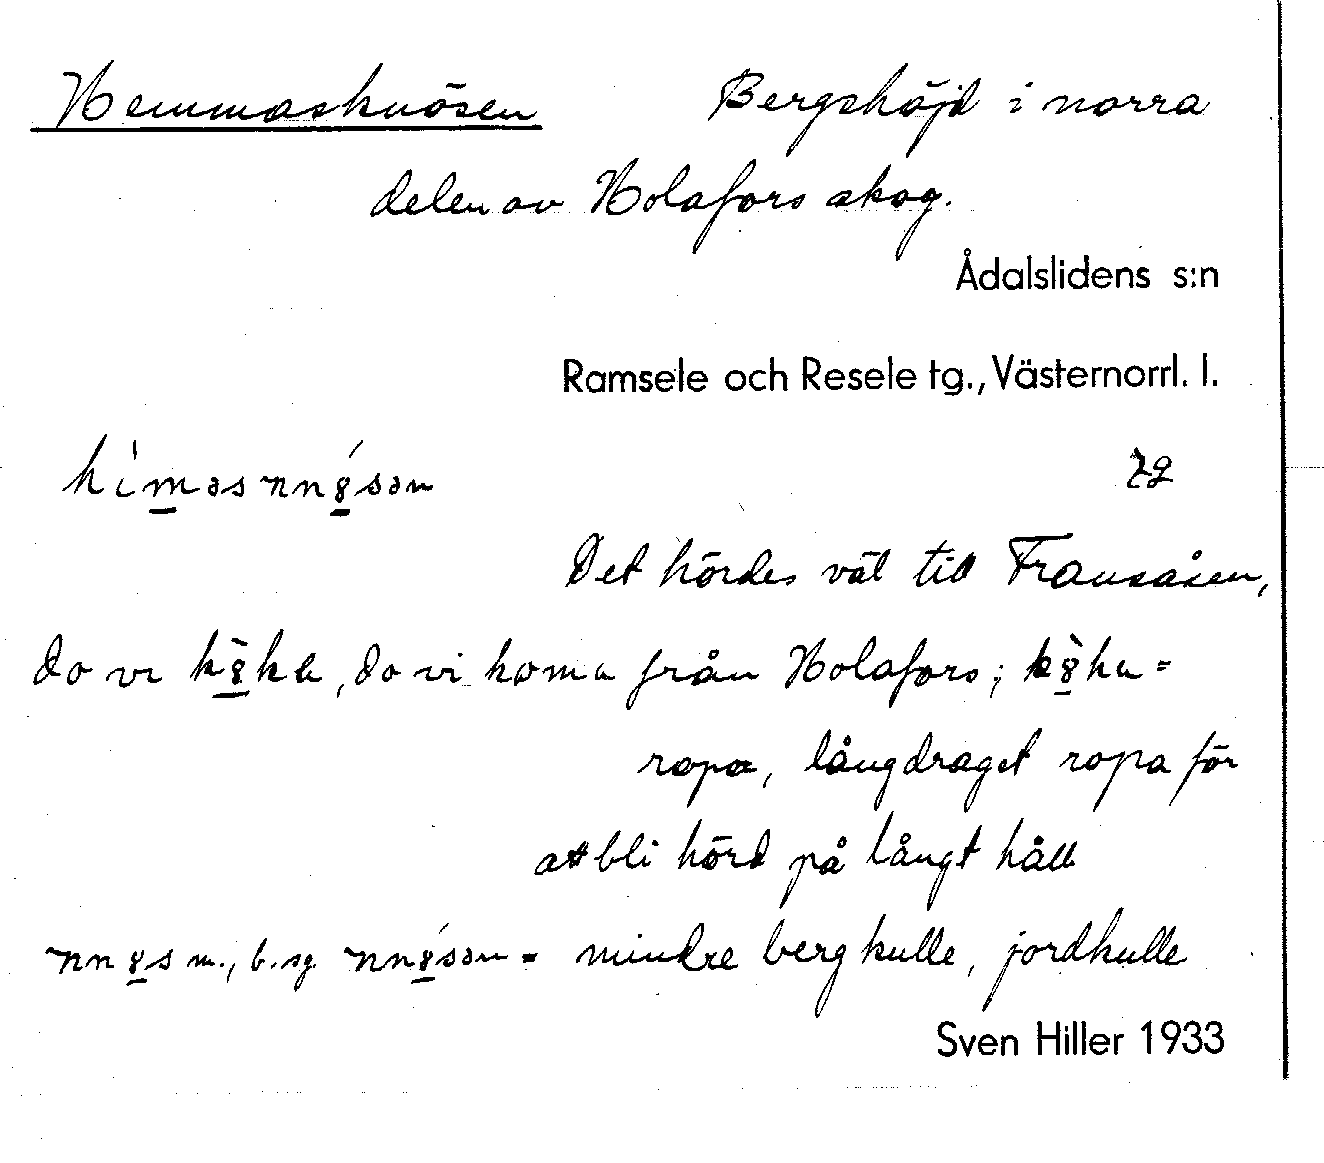 Hemmasknösen Bergshöjd i norra
delen av Holafors skog.
Ådalslidens s:n
Ramsele och Resele tg., Västernorrl. l.
29
Det hördes väl till Fransåsen,
do vi do vi koma från Holafors;
ropa, långdraget ropa för
att bli hörd på långt håll
m., b. sg. = mindre bergkulle, jordkulle
Sven Hiller 1933